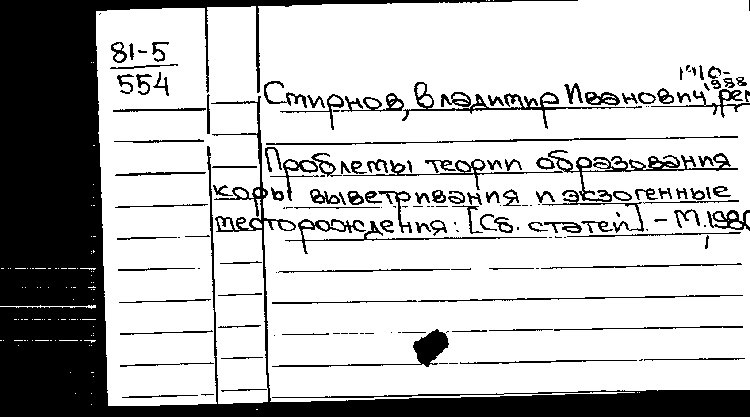 81-5
554
1910-
1988
Смирнов, Владимир Иванович, ред
Проблемы теории образования
коры выветривания и экзогенные
месторождения: [Сб. статей] - М., 1980